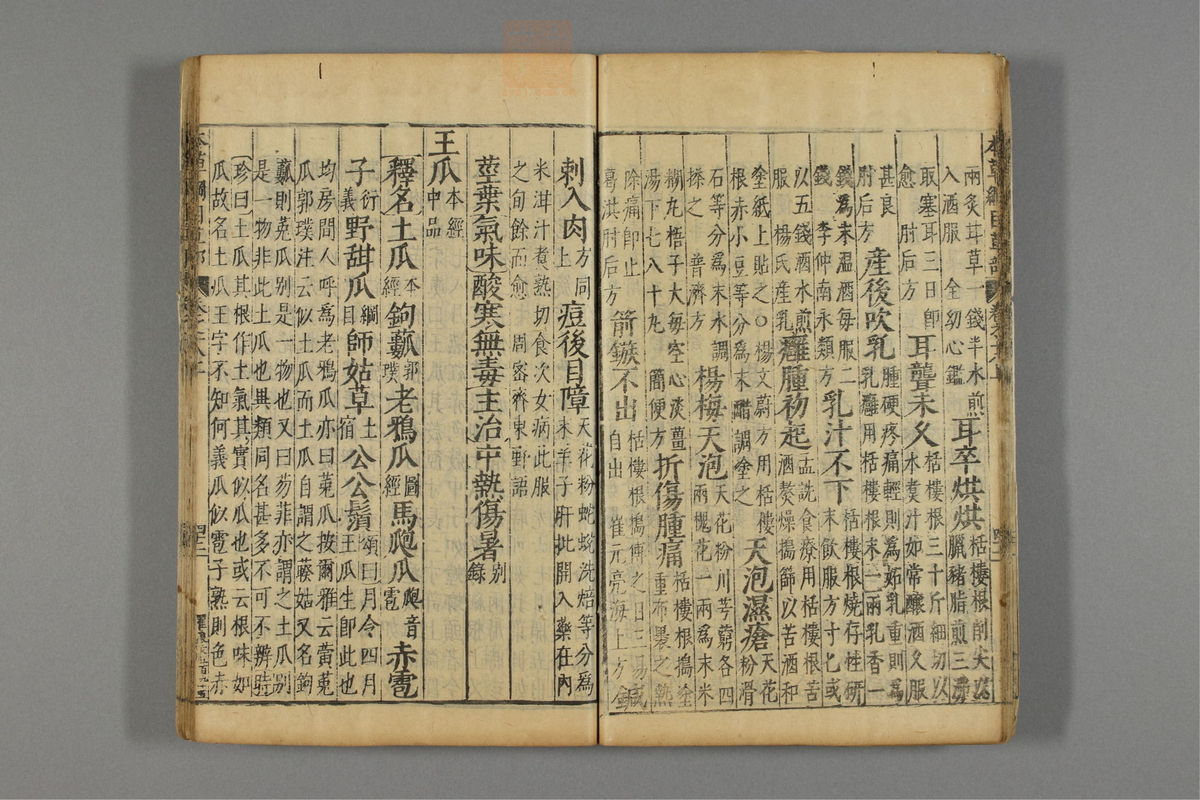 本草綱目草部 卷之十八上
兩炙甘草一錢半水煎入酒服 全幼心鑑 耳卒烘烘 栝樓根削尖以臘豬脂煎三沸
取塞耳三日即愈 肘后方 耳聾未久 栝樓根三十斤細切以水煑汁如常釀酒久服
甚良 肘后方 產後吹乳 腫硬疼痛輕則為妬乳重則為乳癰用栝樓根末一兩乳香一
錢為末溫酒每服二錢 李仲南永類方 乳汁不下 栝樓根燒存性研末飲服方寸匕或
以五錢酒水煎服 楊氏產乳 癰腫初起 孟詵食療用栝樓根苦酒熬燥搗篩以苦酒和
塗紙上貼之○楊文蔚方用栝樓根赤小豆等分為末醋調塗之 天泡濕瘡 天花粉滑
石等分為末水調搽之 普濟方 楊梅天泡 天花粉川芎藭各四兩槐花一兩為末米
糊丸梧子大每空心淡薑湯下七八十丸 簡便方 折傷腫痛 栝樓根搗塗重布裹之熱
除痛即止 葛洪肘后方 箭鏃不出 栝樓根搗傅之日三易自出 崔元亮海上方 鍼
刺入肉 方同上 痘後目障 天花粉蛇蛻洗焙等分為末羊子肝批開入藥在內
米泔汁煮熟切食次女病此服之旬餘而愈 周密齊東野語
莖葉氣味酸寒無毒主治中熱傷暑 別錄
王瓜 本經中品
釋名土瓜 本經 鉤𤬏 郭璞 老鴉瓜 圖經 馬瓟瓜 瓟音雹 赤雹
子 衍義 野甜瓜 綱目 師姑草 土宿 公公鬚 頌曰月令四月王瓜生即此也
均房間人呼為老鴉瓜亦曰菟瓜按爾雅云黃菟瓜郭璞注云似土瓜而土瓜自謂之藤姑又名鉤
𤬏則菟瓜別是一物也又曰芴菲亦謂之土瓜別是一物非此土瓜也異類同名甚多不可不辨時
珍曰土瓜其根作土氣其實似瓜也或云根味如瓜故名土瓜王字不知何義瓜似雹子熟則色赤